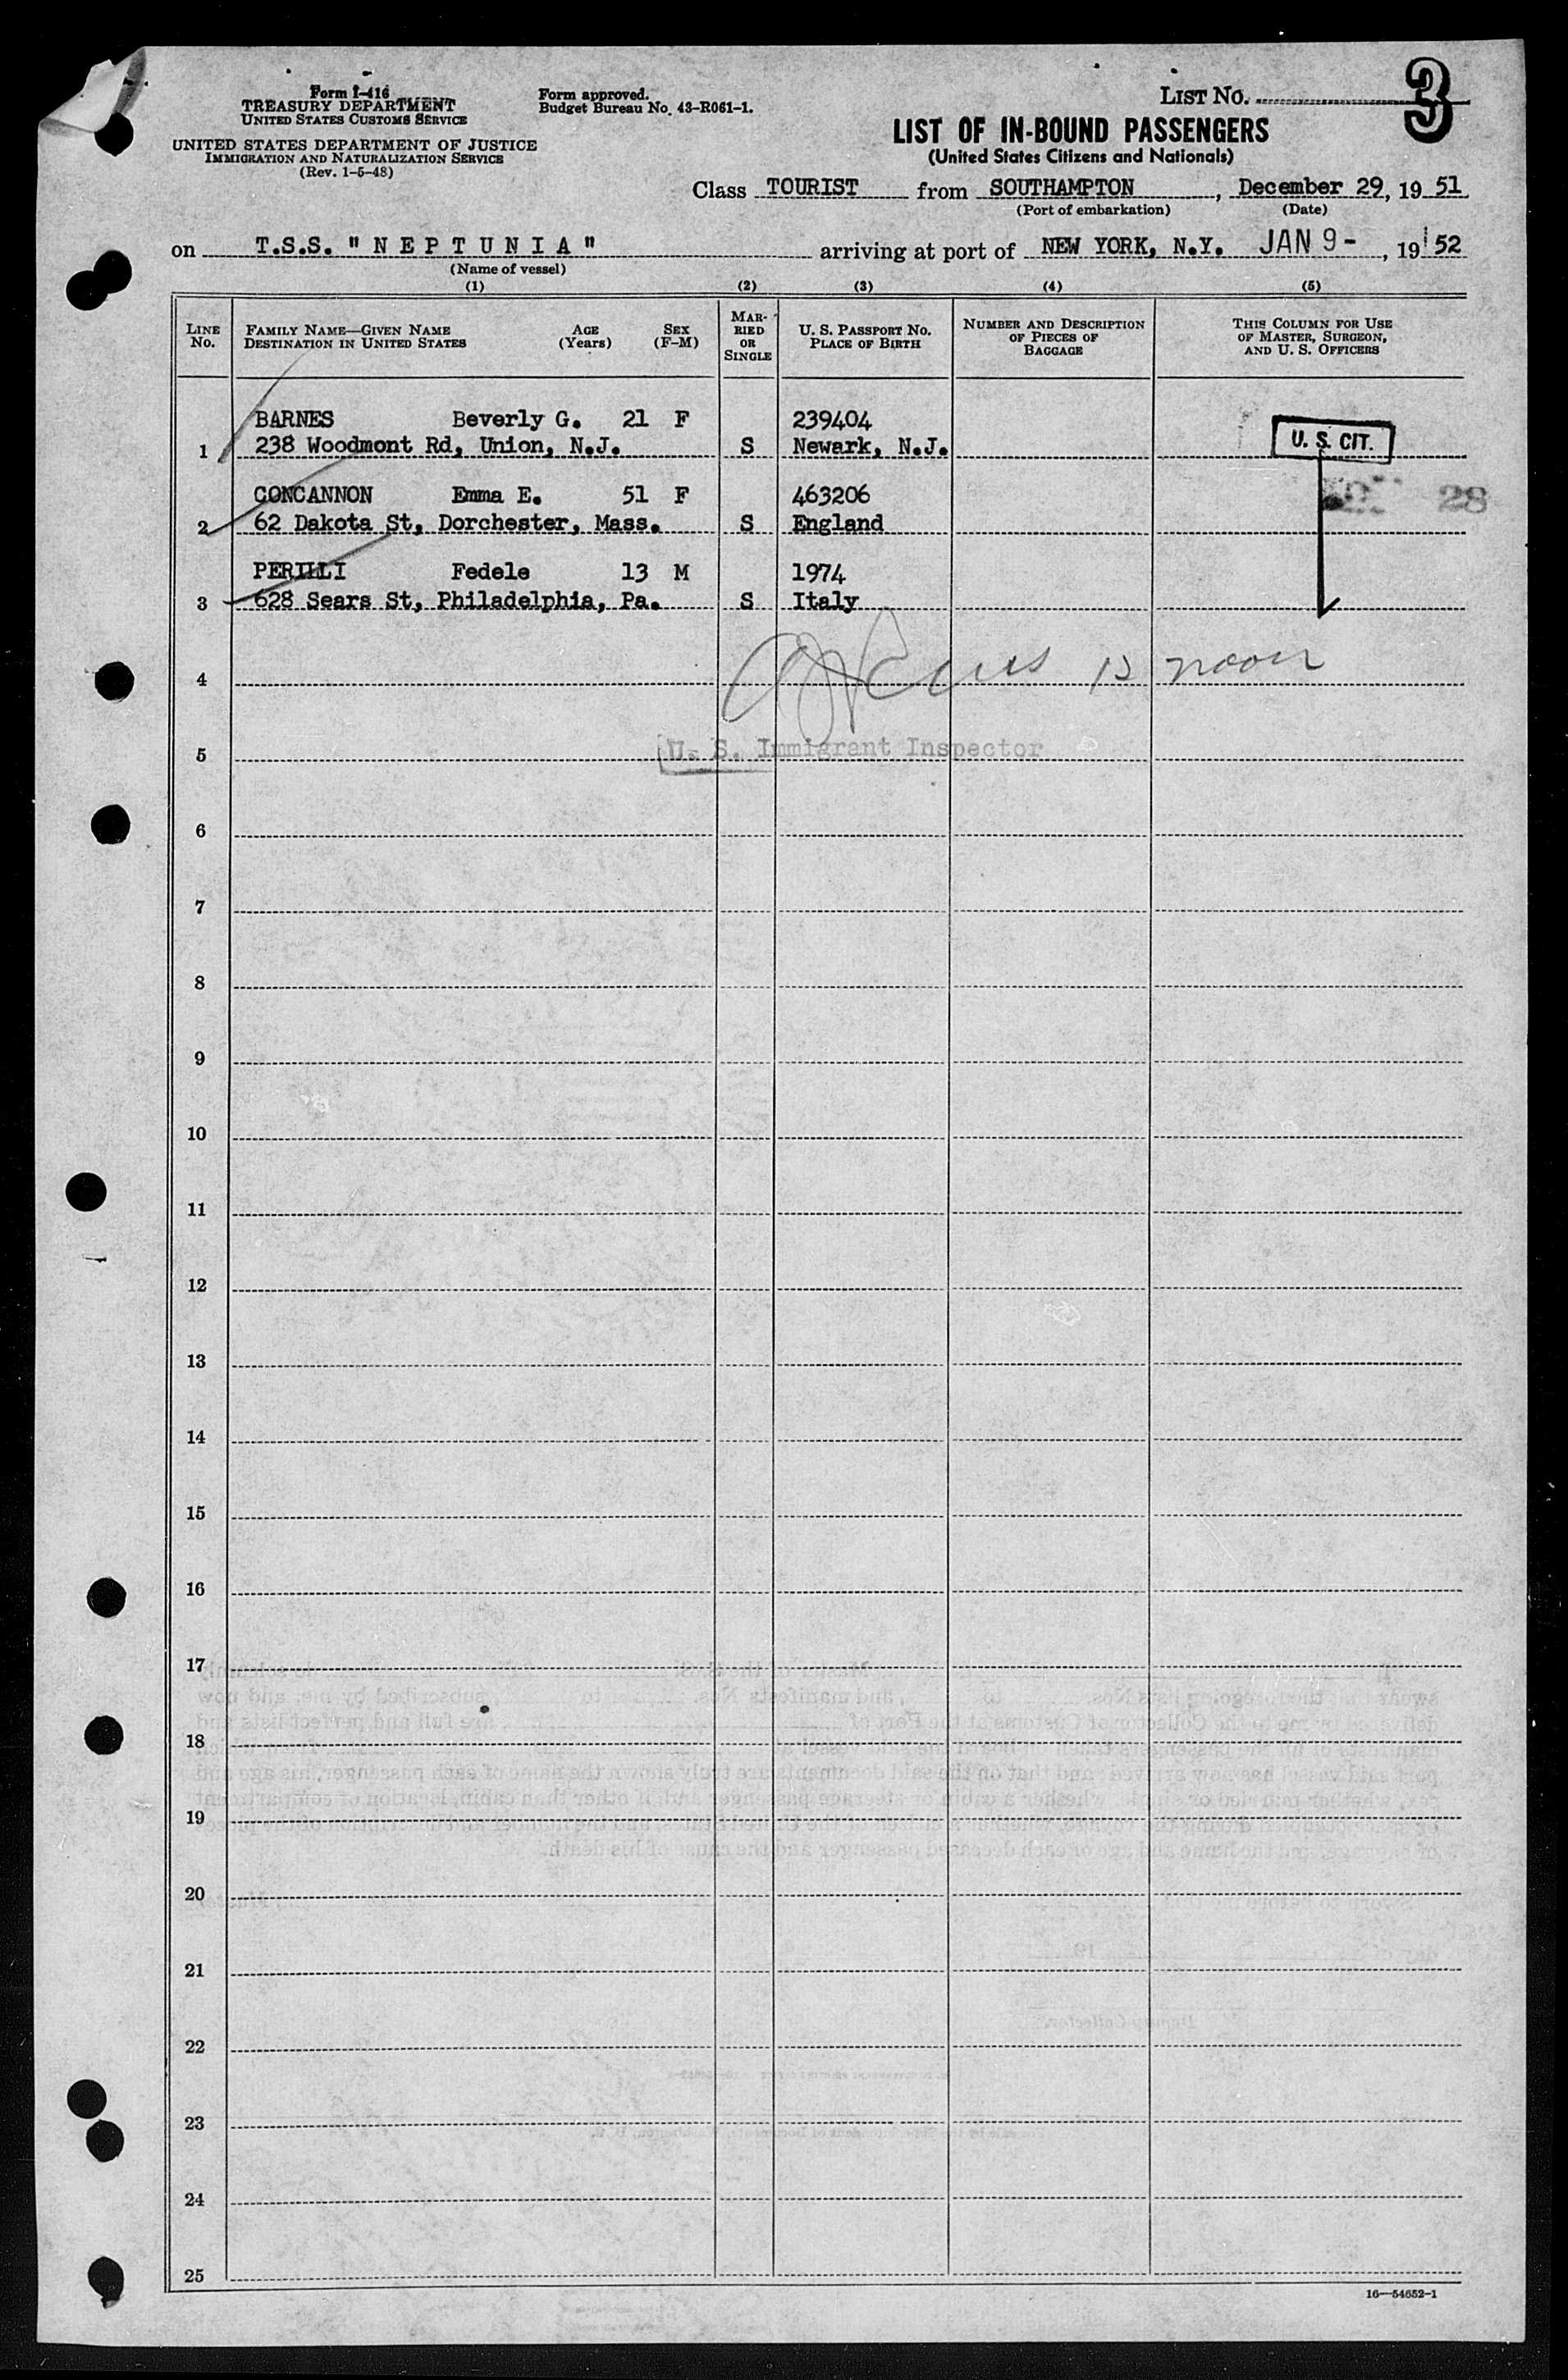 Form I-416
TREASURY DEPARTMENT
UNITED STATES CUSTOMS SERVICE
UNITED STATES DEPARTMENT OF JUSTICE
IMMIGRATION AND NATURALIZATION SERVICE
(Rev. 1-5-48)
Form approved.
Budget Bureau No. 43-R061-1.
LIST NO. 3
LIST OF IN-BOUND PASSENGERS
(United States Citizens and Nationals)
Class TOURIST from SOUTHAMPTON, December 29, 19 51
(Port of embarkation) (Date)
on T.S.S. "NEPTUNIA" arriving at port of NEW YORK, N.Y. JAN 9-, 19 52
(Name of vessel)
(1) (2) (3) (4) (5)
LINE No. FAMILY NAME—GIVEN NAME DESTINATION IN UNITED STATES AGE (Years) SEX (F-M) MARRIED OR SINGLE U. S. PASSPORT NO. PLACE OF BIRTH NUMBER AND DESCRIPTION OF PIECES OF BAGGAGE THIS COLUMN FOR USE OF MASTER, SURGEON, AND U. S. OFFICERS
BARNES Beverly G. 21 F 239404
1 238 Woodmont Rd, Union, N.J. S Newark, N.J. U. S. CIT.
CONCANNON Emma E. 51 F 463206 28
2 62 Dakota St, Dorchester, Mass. S England
PERILLI Fedele 13 M 1974
3 628 Sears St, Philadelphia, Pa. S Italy
4 12 noon
5 U. S. Immigrant Inspector
6
7
8
9
10
11
12
13
14
15
16
17
18
19
20
21
22
23
24
25
16—54652-1